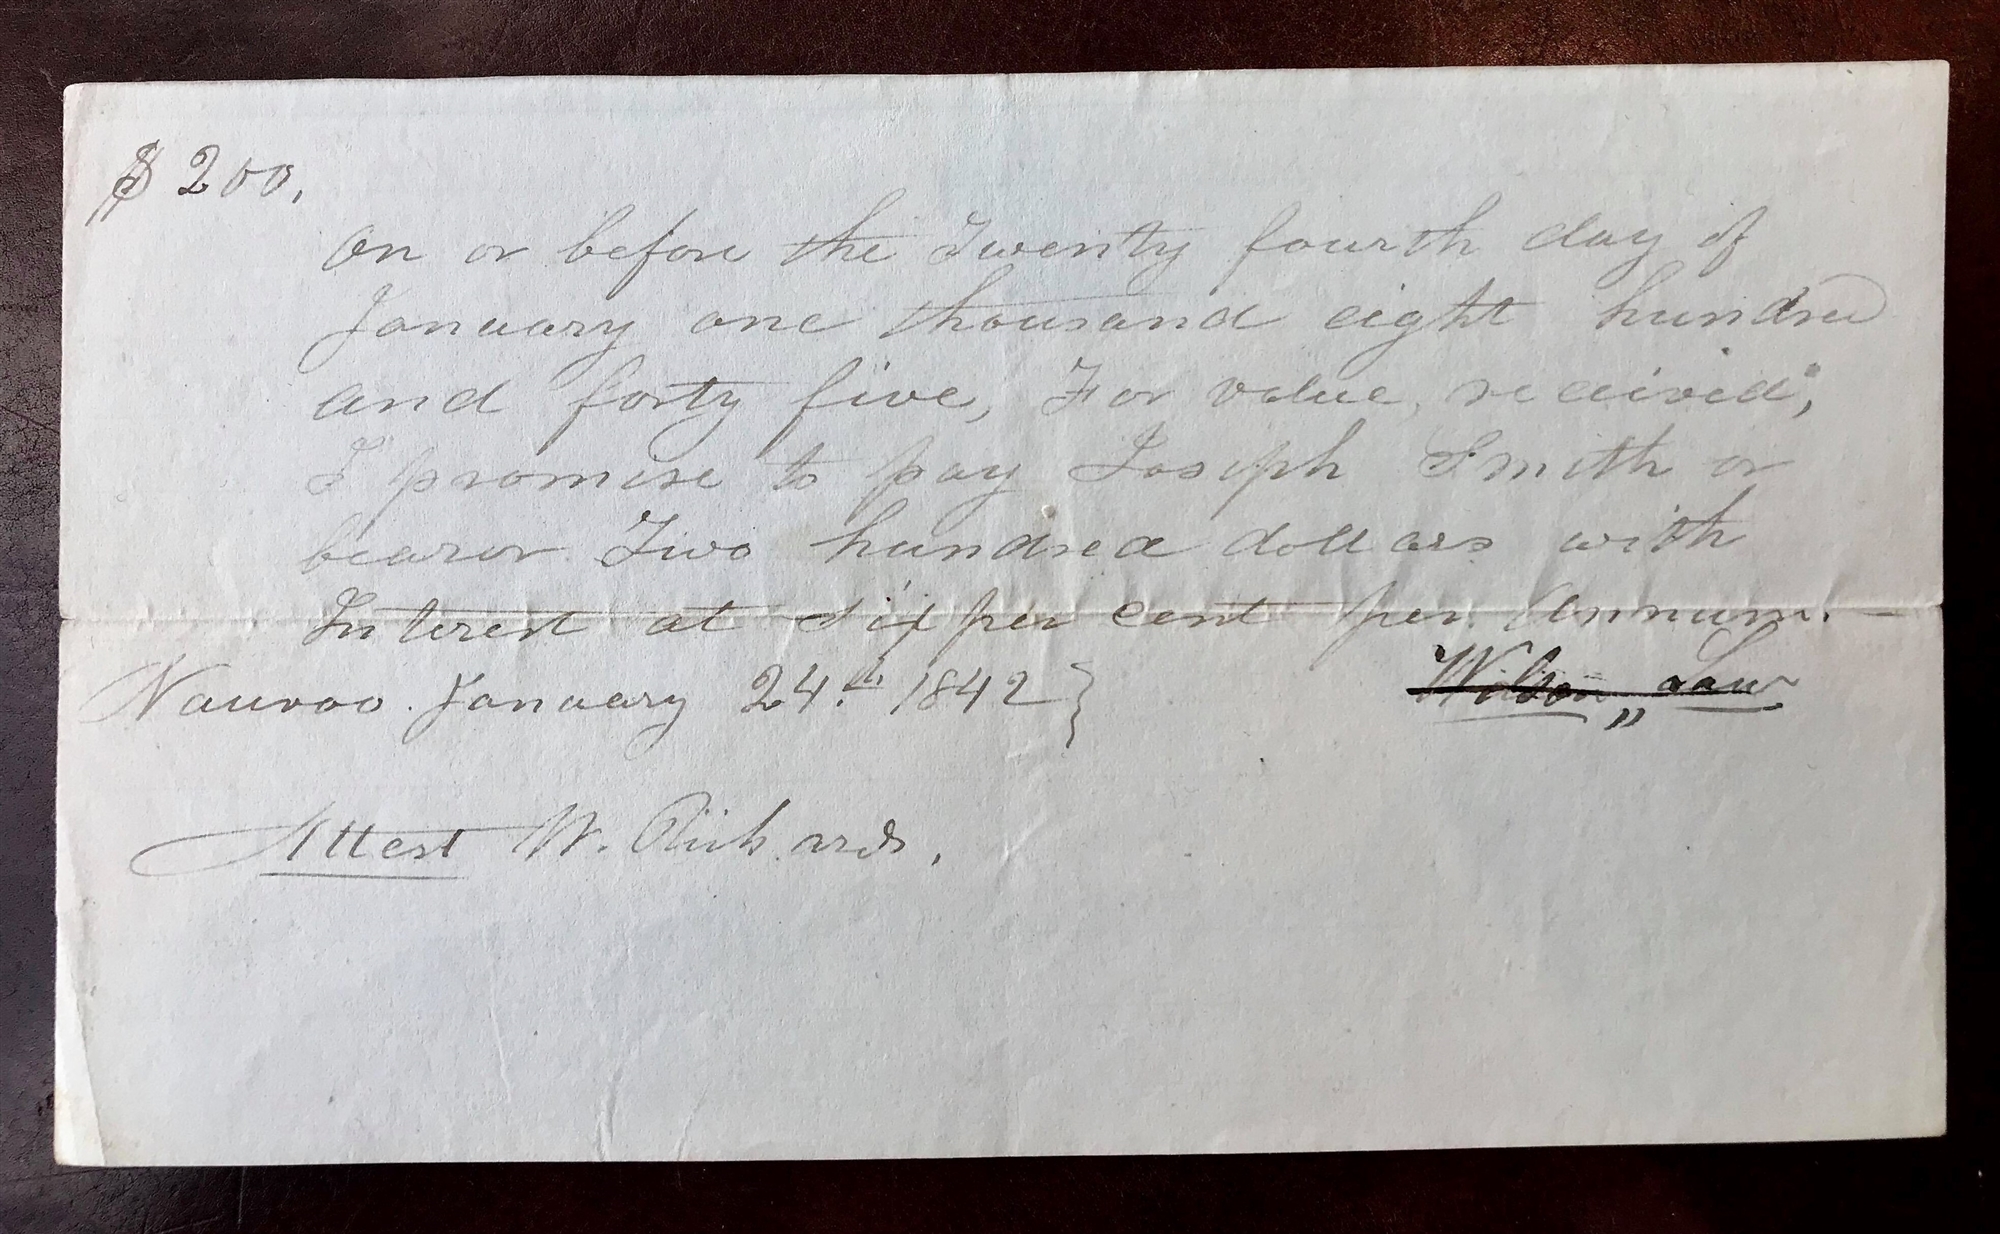 $ 200.
On or before the Twenty fourth day of
January one thousand eight hundred
and forty five, For value, received,
I promise to pay Joseph Smith or
bearor Two hundred dollars with
Interest at six per cent per. Annum. —
Nauvoo. January 24.th 1842 }
Wilson „ Law
Attest W. Richards.